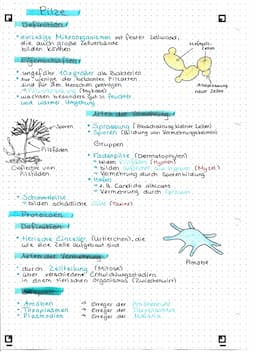 Pilze
Definition
• einzellige Mikroorganismen mit fester Zellwand,
die auch große Zellverbände
bilden können
Eigenschaften
• ungefähr 10x größer als Bakterien
• nur wenige der bekannten Pilzarten
sind für den Menschen pathogen
→ (Mykose)
• wachsen besonders gut in feuchter
und warmer Umgebung
Arten der Vermehrung
• Sprossung (Abschnürung kleiner Zellen)
• Sporen (Bildung von Vermehrungskörpern)
Sporen
Pilzfäden
Geflecht von
Pilzfäden
Gruppen
• Fadenpilze (Dermatophyten)
• bilden (Hyphen)
• bilden Geflecht (Myzel)
• Vermehrung durch Sporenbildung
• Hefen
• z.B. Candida albicans
• Vermehrung durch Sprossen
• Schimmelpilze
• bilden schädliche Gifte (Toxine)
Protozoen
Definition
• tierische Einzeller (Urtierchen), die
aus einer Zelle aufgebaut sind
Amöbe
Arten der Vermehrung
• durch Zellteilung (Mitose)
• über verschiedene Entwicklungsstadien
in einem tierischen Organismus (Zwischenwirt)
• Amöben → Erreger der Amöbenruhr
• Toxoplasmen → Erreger der Toxoplasmose
• Plasmodien → Erreger der Malaria